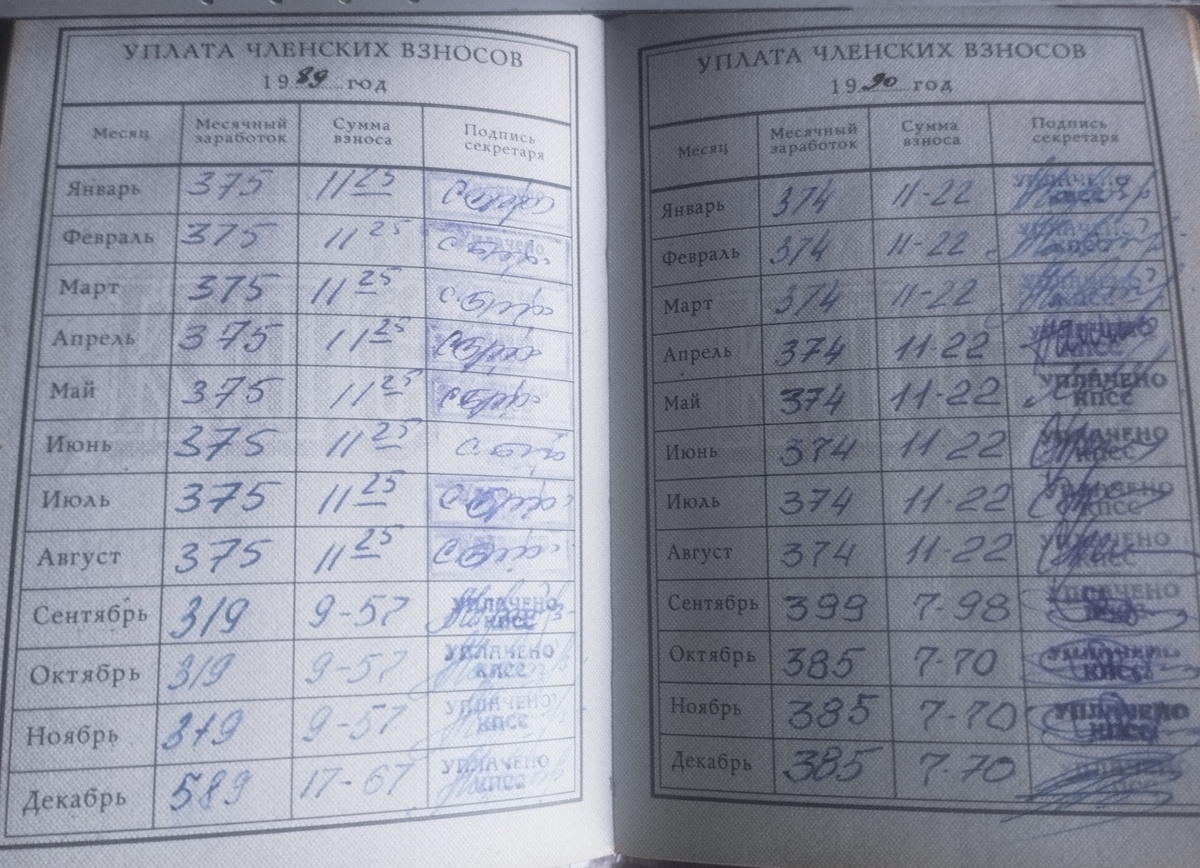 УПЛАТА ЧЛЕНСКИХ ВЗНОСОВ
1989 год
Месяц Месячный заработок Сумма взноса Подпись секретаря
Январь 375 11 25
Февраль 375 11 25
Март 375 11 25
Апрель 375 11 25
Май 375 11 25
Июнь 375 11 25
Июль 375 11 25
Август 375 11 25
Сентябрь 319 9-57 УПЛАЧЕНО КПСС
Октябрь 319 9-57 УПЛАЧЕНО КПСС
Ноябрь 319 9-57 УПЛАЧЕНО КПСС
Декабрь 589 17-67 УПЛАЧЕНО КПСС
УПЛАТА ЧЛЕНСКИХ ВЗНОСОВ
1990 год
Месяц Месячный заработок Сумма взноса Подпись секретаря
Январь 374 11-22 УПЛАЧЕНО КПСС
Февраль 374 11-22 УПЛАЧЕНО КПСС
Март 374 11-22 УПЛАЧЕНО КПСС
Апрель 374 11-22 УПЛАЧЕНО КПСС
Май 374 11-22 УПЛАЧЕНО КПСС
Июнь 374 11-22 УПЛАЧЕНО КПСС
Июль 374 11-22 УПЛАЧЕНО КПСС
Август 374 11-22 УПЛАЧЕНО КПСС
Сентябрь 399 7-98 УПЛАЧЕНО КПСС
Октябрь 385 7-70 УПЛАЧЕНО КПСС
Ноябрь 385 7-70 УПЛАЧЕНО КПСС
Декабрь 385 7-70 УПЛАЧЕНО